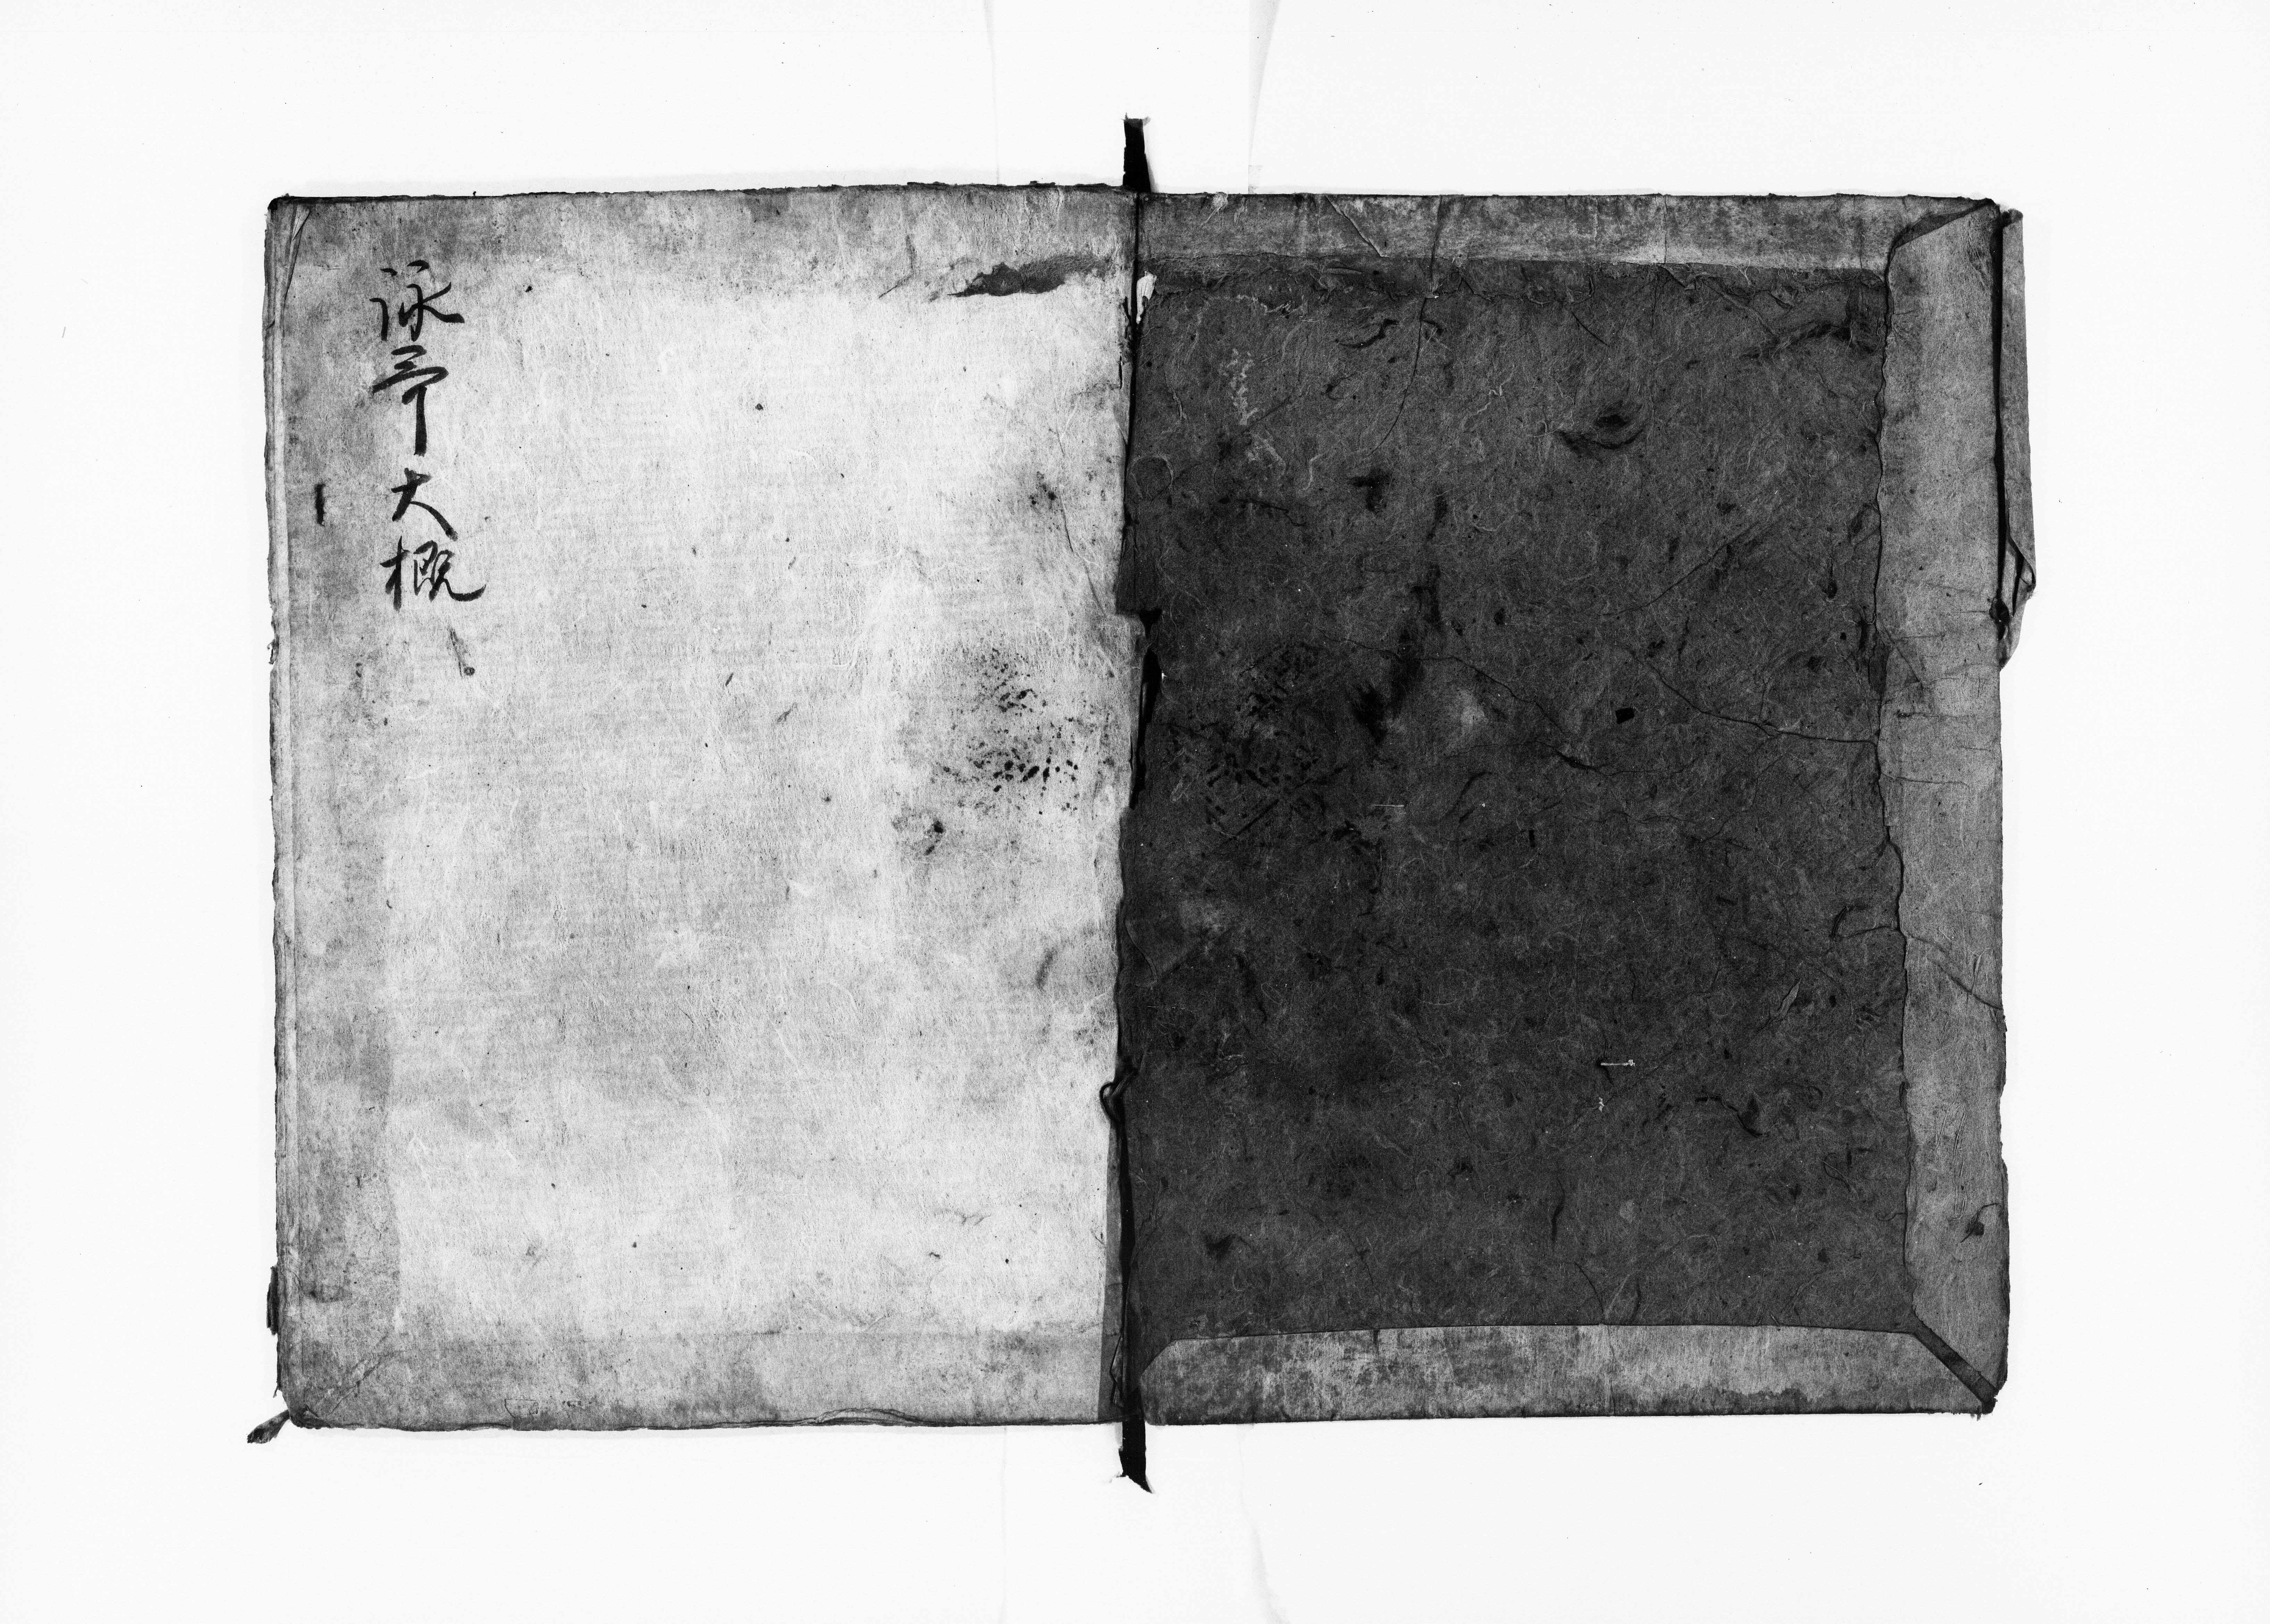 詠哥大概